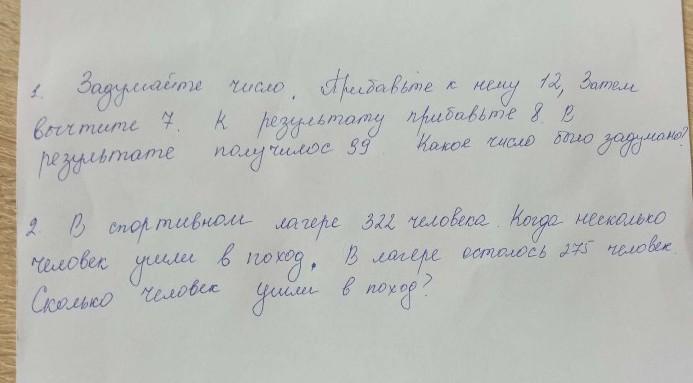 1. Задумайте число. Прибавьте к нему 12, Затем
вычтите 7. К результату прибавьте 8. В
результате получилос 99 Какое число было задумано?
2. В спортивном лагере 322 человека. Когда несколько
человек ушли в поход. В лагере осталось 275 человек.
Сколько человек ушли в поход?